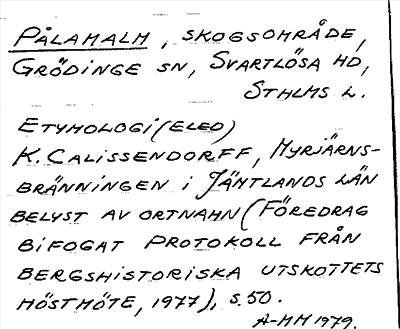 PÅLAMALM, SKOGSOMRÅDE,
GRÖDINGE SN, SVARTLÖSA HD,
STHLMS L.
ETYMOLOGI (ELED)
K. CALISSENDORFF, MYRJÄRNS-
BRÄNNINGEN I JÄMTLANDS LÄN
BELYST AV ORTNAMN (FÖREDRAG
BIFOGAT PROTOKOLL FRÅN
BERGSHISTORISKA UTSKOTTETS
HÖSTMÖTE, 1977), S. 50.
A-MM 1979.